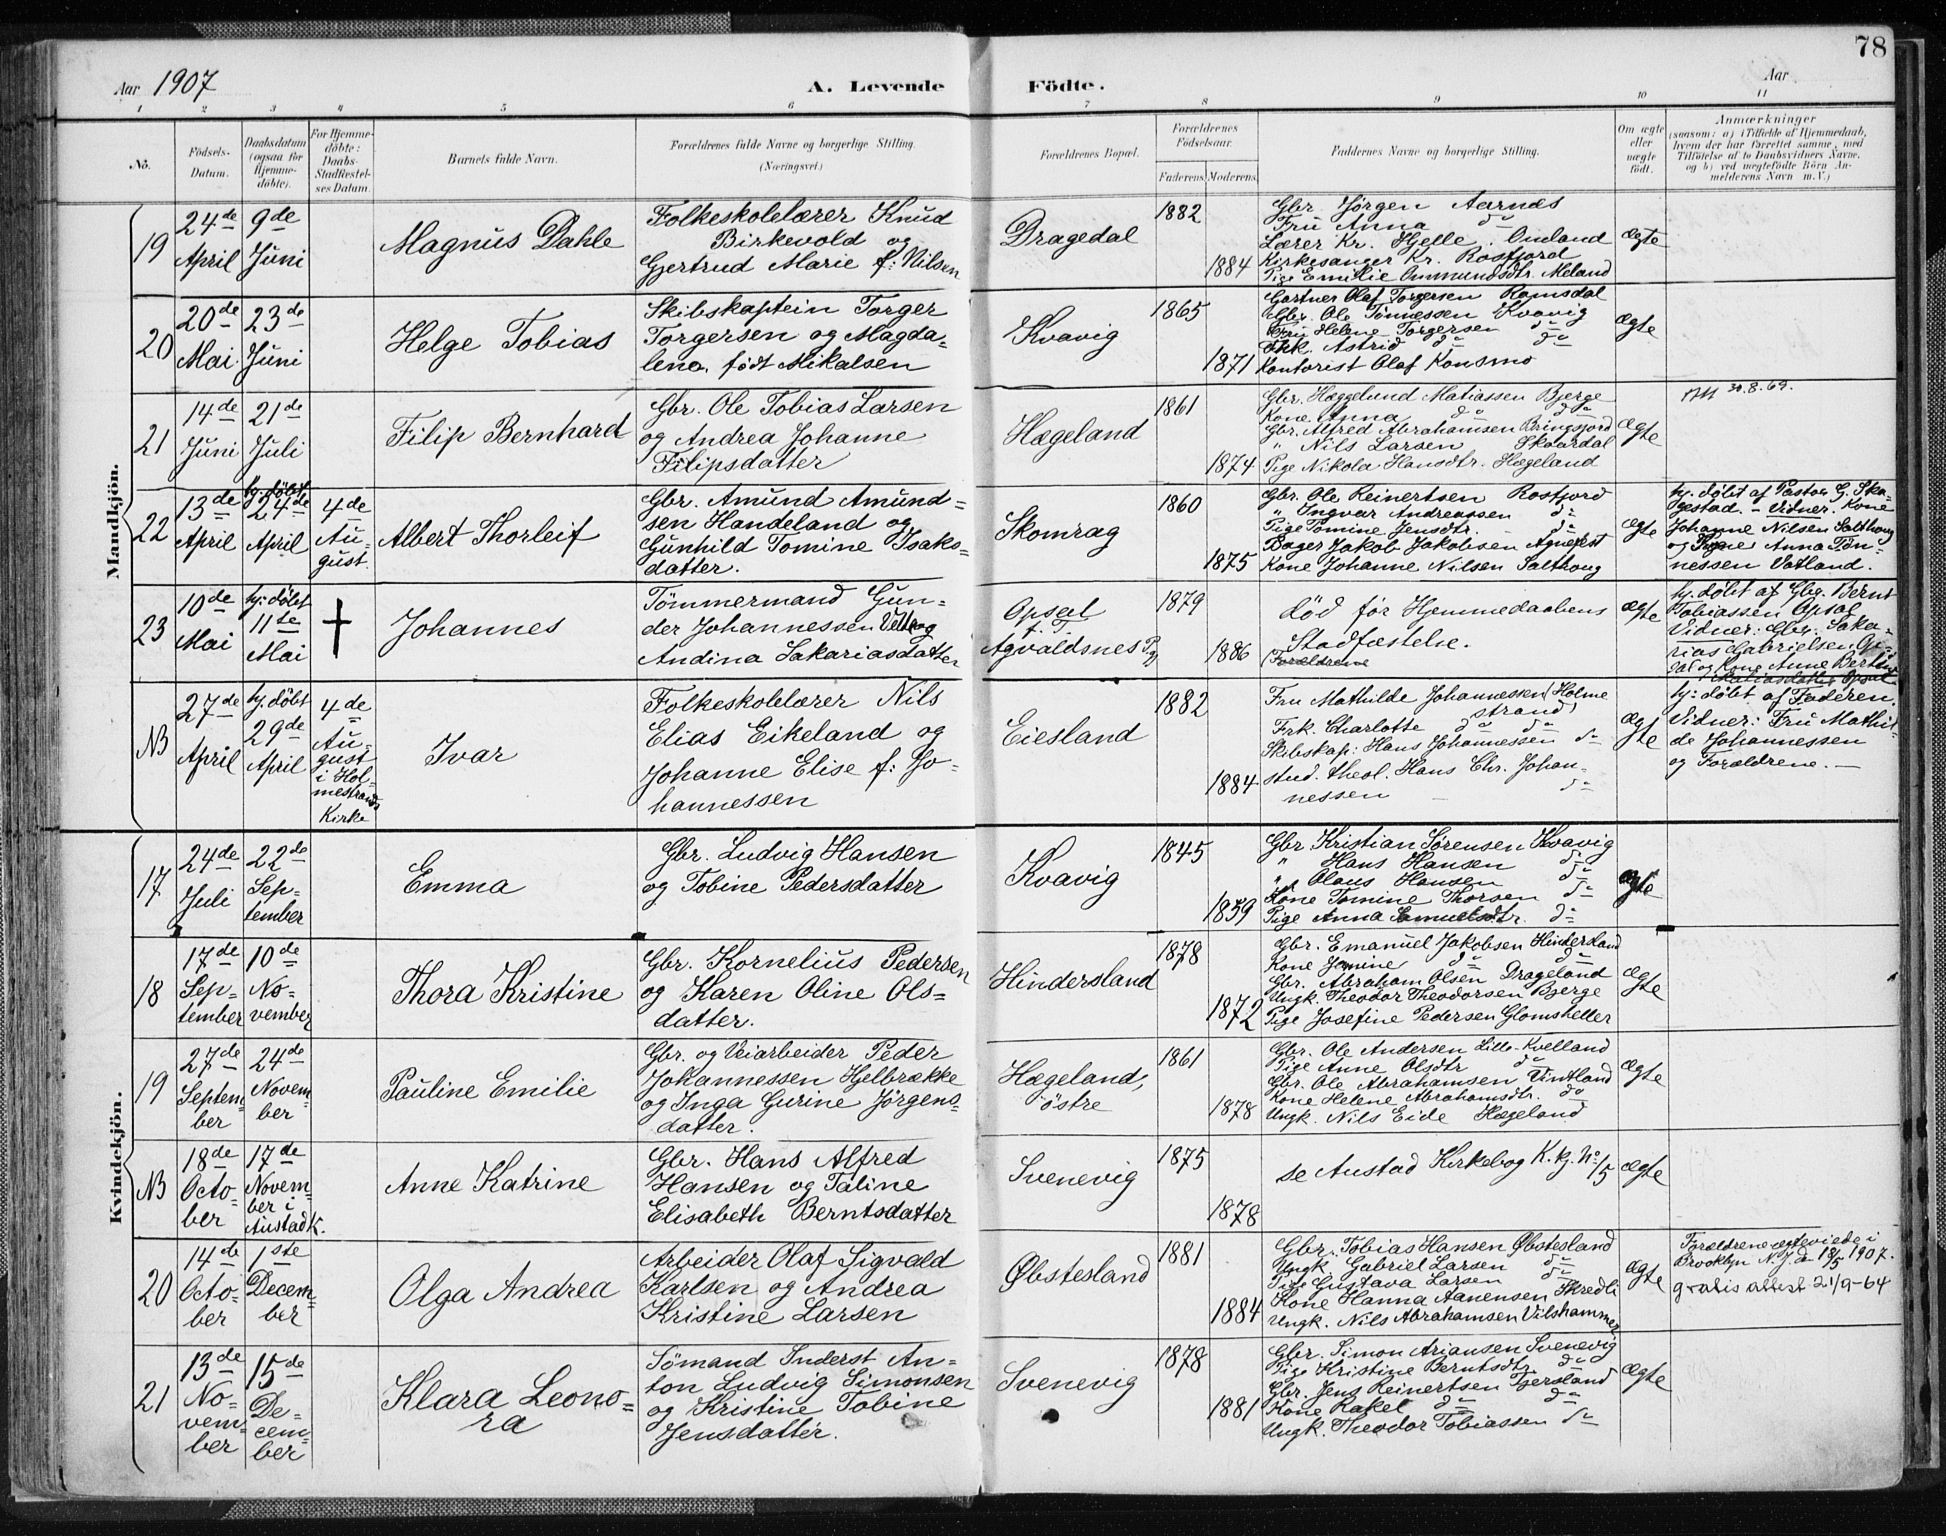 78
Aar 1907
A. Levende Födte.
Aar
1 2 3 4 5 6 7 8 9 10 11
No.
Födsels-Datum.
Daabsdatum (ogsaa for Hjemme-döbte).
For Hjemme-döbte: Daabs-Stadfæstel-ses Datum.
Barnets fulde Navn.
Forældrenes fulde Navne og borgerlige Stilling.
(Næringsvei.)
Forældrenes Bopæl.
Forældrenes Födselsaar.
Faderens. Moderens.
Faddernes Navne og borgerlige Stilling.
Om ægte eller uægte födt.
Anmærkninger
(saasom: a) i Tilfælde af Hjemmedaab,
hvem der har forrettet samme, med
Tilföielse af to Daabsvidners Navne,
og b) ved uægtefödte Börn An-
melderens Navn m. V.)
Mandkjön.
19
24de April
9de Juni
Magnus Dahle
Folkeskolelærer Knud
Birkevold og
Gjertrud Marie f: Nilsen
Dragedal
1882
1884
Gbr. Jørgen Aarnes
Fru Anna do
Lærer Kr. Hjelle. Omland
Kirkesanger Kr. Rosfjord
Pige Emilie Ommundsdtr. Meland
ægte
20
20de Mai
23de Juni
Helge Tobias
Skibskaptein Torger
Torgersen og Magda-
lena, født Mikalsen
Kvavig
1865
1871
Gartner Olaf Torgersen Ramsdal
Gbr. Ole Tönnessen Kvavig
Fru Helene Torgersen do
Frk. Astrid do do
Kontorist Olaf Konsmo
Ægte
21
14de Juni
21de Juli
Filip Bernhard
Gbr. Ole Tobias Larsen
og Andrea Johanne
Filipsdatter
Hægeland
1861
1874
Gbr. Hæggelund Matiassen Bjerge
Kone Anna do do
Gbr. Alfred Abrahamsen Bringsjord
" Nils Larsen Skaardal
Pige Nikola Hansdtr. Hægeland
Ægte
30.8.69.
22
13de April
hj. döbt 24de April
4de Au-
gust
Albert Thorleif
Gbr. Amund Amund-
sen Handeland og
Gunhild Tomine Isaks-
datter.
Skomrag
1860
1875
Gbr. Ole Reinertsen Rosfjord
" Ingvar Andreassen do
Pige Tomine Jensdtr. do
Bager Jakob Jakobsen Agnefest
Kone Johanne Nilsen Salthoug
Ægte
hj. döbt af Pastor G. Ska-
gestad. - Vidner: Kone
Johanne Nilsen Salthoug
og Pige Anna Tön-
nessen Vatland.
23
10de Mai
hj: döbt 11te Mai
†
Johannes
Tömmermand Gun-
der Johannessen
Andina Sakariasdatter
Opsal
f. T.
Agvaldsnes Pg
1879
1886
död för Hjemmedaabens
Stadfæstelse.
Forældrene
Ægte
hj. döbt af Gbr. Bernt
Tobiassen Opsal
Vidner: Gbr. Saka-
rias Gabrielsen Op-
sal og Kone Anne
NB
27de April
hj. döbt 29de April
4de
Au-
gust
i Hol-
mestrands
Kirke
Ivar
Folkeskolelærer Nils
Elias Eikeland og
Johanne Elise f: Jo-
hannessen
Eiesland
1882
1884
Fru Mathilde Johannessen (Holme
strand)
Frk. Charlotte do do
Skibskap: Hans Johannessen do
stud. theol. Hans Chr. Johan-
nessen - do
Ægte
hj: döbt af Faderen.
Vidner: Fru Mathil-
de Johannessen
og Forældrene. -
Kvindekjön.
17
24de Juli
22de Sep-
tember
Emma
Gbr. Ludvig Hansen
og Tobine Pedersdatter
Kvavig
1845
1859
Gbr Kristian Sørensen Kvavig
" Hans Hansen do
" Olaus Hansen do
Kone Tomine Thorsen do
Pige Anna Samuelsdtr. do
ægte
18
17de Sep-
tember
10de No-
vember
Thora Kristine
Gbr. Kornelius Pedersen
og Karen Oline Ols-
datter.
Hindersland
1878
1872
Gbr. Emanuel Jakobsen Hindersland
Kone Jenine do do
Gbr. Abraham Olsen Drageland
Ungk. Theodor Theodorsen Bjerge
Pige Josefine Pedersen Glomsheller
Ægte
19
27de Septem-
ber
24de Novem-
ber
Pauline Emilie
Gbr. og Veiarbeider Peder
Johannessen Helbrække
og Inga Gurine Jørgens-
datter.
Hægeland,
østre
1861
1878
Gbr. Ole Andersen Lille-Kvelland
Pige Anne Olsdtr do
Gbr. Ole Abrahamsen Vintland
Kone Helene Abrahamsdtr. do
Ungk. Nils Eide Hægeland
Ægte
NB
18de Octo-
ber
17de Novem-
ber i
Austad K.
Anne Katrine
Gbr. Hans Alfred
Hansen og Taline
Elisabeth Berntsdatter
Svenevig
1875
1878
se Austad Kirkebog K. kj. No 15
Ægte
20
14de Octo-
ber
1ste Decem-
ber
Olga Andrea
Arbeider Olaf Sigvald
Karlsen og Andrea
Kristine Larsen
Øbstesland
1881
1884
Gbr. Tobias Hansen Øbstesland
Ungk. Gabriel Larsen do
Pige Gustava Larsen do
Kone Hanna Aanensen Skredli
Ungk. Nils Abrahamsen Vilshammer
Ægte
Forældrene ægteviede i
Brooklyn N.Y. d. 18/5 1907.
gratis attest 21/9-64
21
13de No-
vem-
ber
15de De-
cem-
ber
Klara Leono-
ra
Sömand Inderst An-
ton Ludvig Simonsen
og Kristine Tobine
Jensdatter.
Svenevig
1878
1881
Gbr. Simon Ariansen Svenevig
Pige Kristine Berntsdtr do
Gbr. Jens Reinertsen Tjersland
Kone Rakel do do
Ungk. Theodor Tobiassen do
Ægte